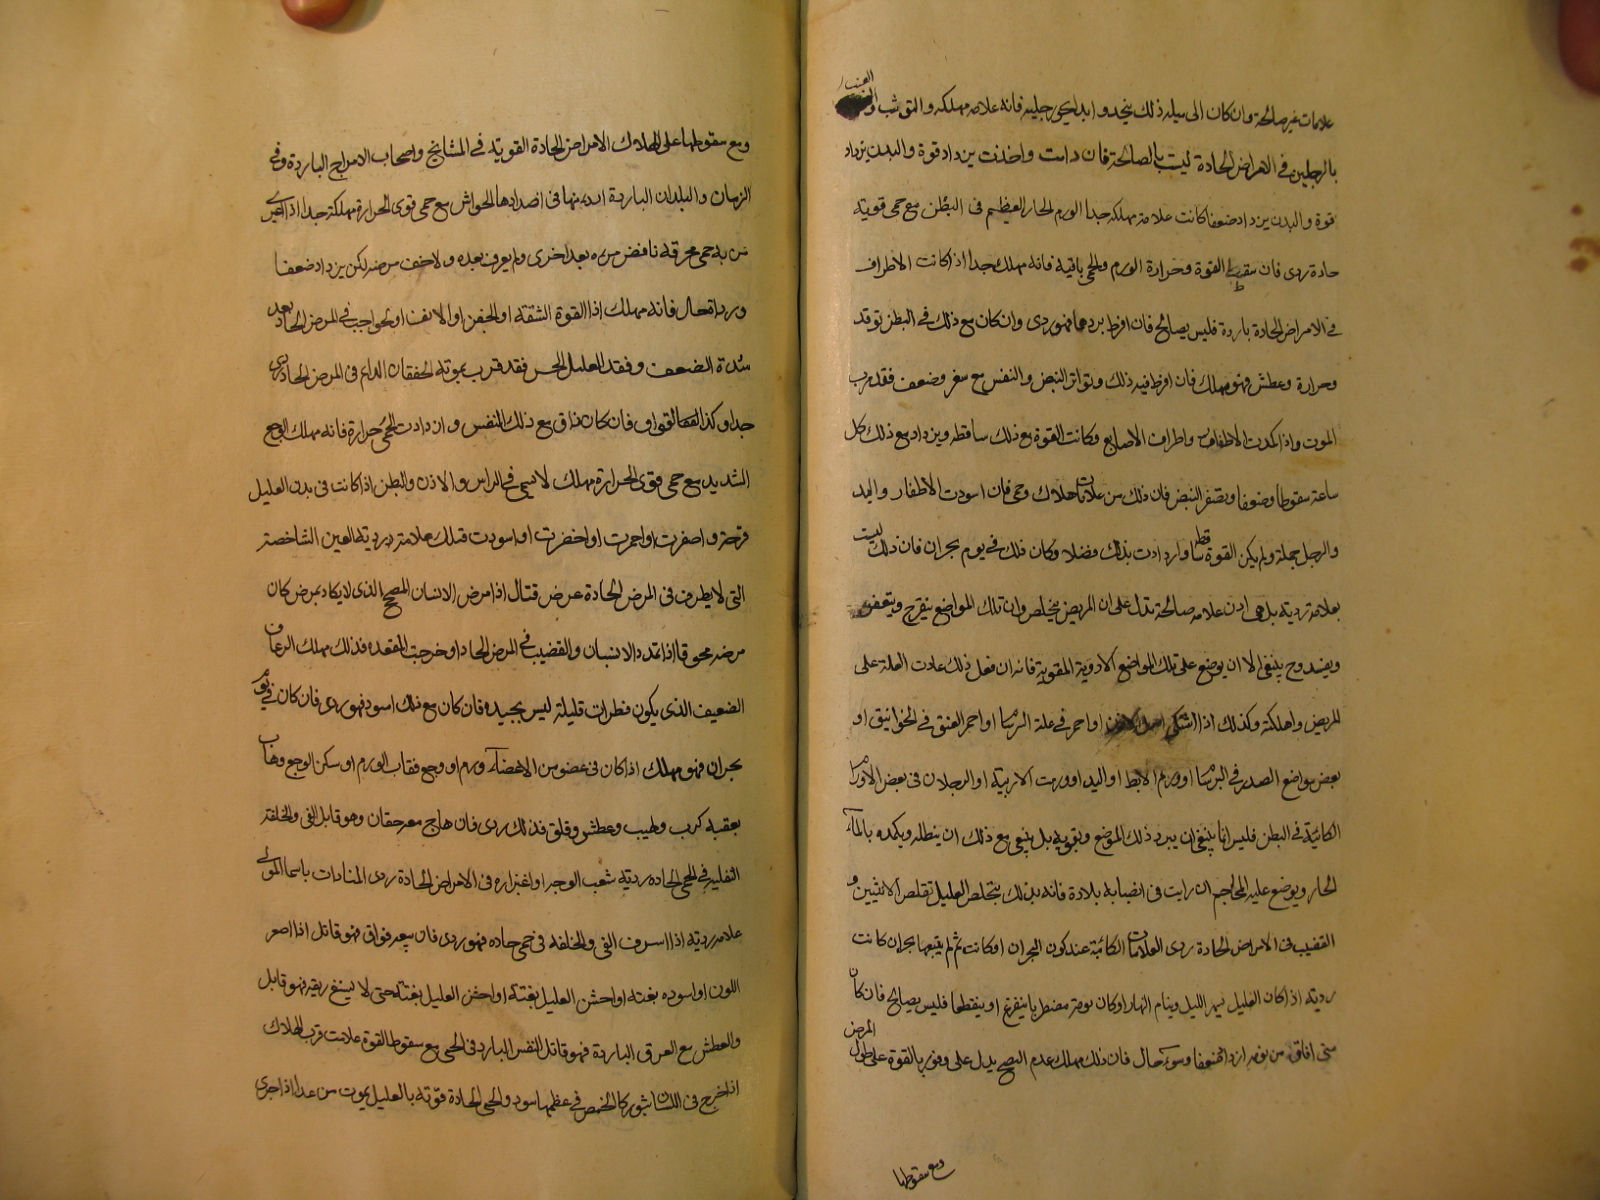 علامات غير صالحة وان كان الى ميله ذلك يتجدد و ابدا يكور رجليه فانه علامه مهلكه و التوثب و العبث
بالرجلين في الامراض الحادة ليست بالصالحة فان دامت واخذت يزداد قوة والبدن يزداد
قوة والبدن يزداد ضعفا كانت علامة مهلكه جدا الورم الحار العظيم فى البطن مع حمى قوية
حادة ردى فان سقطت القوة وحرارة الورم والحمى باقية فانه مهلك جدا اذا كانت الاطراف
في الامراض الحادة باردة فليس بصالح فان افرط بردها فهو ردى وان كان مع ذلك في البطن توقد
وحرارة وعطش فهو مهلك فان افرط فيه ذلك وتواتر النبض والنفس مع صغر وضعف فقد قرب
الموت واذا كمدت الاظفار واطراف الاصابع وكانت القوة مع ذلك ساقطه ويزداد مع ذلك كل
ساعة سقوطا وضعفا ويصغر النبض فان ذلك من علامات هلاك وحى فان اسودت الاظفار واليد
والرجل جملة ولم يكن القوة ساقطة او ازدادت بذلك فضلا وكان ذلك في يوم بحران فان ذلك ليست
بعلامة ردية بل هى اذن علامه صالحة تدل على ان المريض يتخلص وان تلك المواضع يتقرح ويتعفن
ويفسد وح ينبغى الا ان يوضع على تلك المواضع الادوية المقوية فانه ان فعل ذلك عادت العلة على
المريض واهلكته وكذلك اذا اشتكى او احمر في علة البرسام او احمر العنق في الخوانيق او
بعض مواضع الصدر في البرسام او ورم الابط او اليد او ورمت الاربية او الرجلان فى بعض الاورام
الكائنة في البطن فليس انما ينبغى ان يبرد ذلك الموضع ويقويه بل ينبغى مع ذلك ان ينطله ويكمده بالماء
الحار ويوضع عليه المحاجم ان رايت فى انصبابه بلادة فانه بذلك يتخلص العليل تقلص الانثيين و
القضيب فى الامراض الحادة ردى العلامات الكائنة عند كون البحران او كانت ثم لم يتبعها بحران كانت
ردية اذا كان العليل يسهر الليل وينام النهار او كان نومه مضطربا يتفزع او يتقطعا فليس بصالح فان كان
متى افاق من نومه ازداد ضعفا وسوء حال فان ذلك مهلك عدم النضج يدل على وفور بالقوة على طول المرض
ومع سقوطها
ومع سقوطها على الهلاك الامراض الحادة القوية في المشايخ واصحاب الامزاج الباردة وفى
الزمان والبلدان الباردة اردء منها فى اضدادها الحواش مع حمى قوى الحرارة مهلكة جدا اذا اعترى
من به حمى محرقه نافض مرة بعد اخرى ولم يعرق بعده ولا خف مرضه لكن يزداد ضعفا
ورداة حال فانه مهلك اذا القوة الشفة او الجفن او الانف او الحواجب في المرض الحاد بعد
شدة الضعف وفقد العليل الحس فقد قرب بموته الخفقان الدائم فى المرض الحاد ردى
جدا وكذا الفواق فان كان ذاق مع ذلك النفس وازدادت الحمى حرارة فانه مهلك الوجع
الشديد مع حمى قوى الحرارة مهلك لا سيما في الراس والاذن والبطن اذا كانت فى بدن العليل
قرحة واصفرت او احمرت او اخضرت او اسودت فتلك علامة ردية العين الشاخصة
التى لا يطرف فى المرض الحادة عرض قتال اذا مرض الانسان المصحح الذى لا يكاد يمرض كان
مرضه مخوفا اذا تمدد الانثيان والقضيب في المرض الحاد او خرجت المقعدة فذلك مهلك الرعاف
الضعيف الذى يكون قطرات قليلة ليس بجيده فان كان مع ذلك اسود فهو ردى فان كان في يوم
بحران فهو مهلك اذا كان فى عضو من الاعضاء ورم او وجع فغاب الورم او سكن الوجع وهاب
بعقبه كرب ولهيب وعطش وقلق فذلك ردى فان هاج معه خفقان وهو قاتل القى والخلفة
القليله في الحمى الحاده ردية شعب الوجه او اغبراره فى الامراض الحادة ردى المنادات باسماء الموتى
علامه ردية اذا اسرف القى والخلفه فى حمى حاده فهو ردى فان بعده فواق فهو قاتل اذا اصفر
اللون او اسوده بغته او اخشن العليل بغتة او اختنق العليل بغتة حتى لا يسيغ ريقه فهو قاتل
والعطش مع العرق الباردة فهو قاتل النفس البارد فى الحمى مع سقوط القوة علامت قرب الهلاك
اذا خرج فى اللسان بثور كالحمص في عظمها سود والحمى الحادة قوته بالعليل يموت من غد اذا جرى